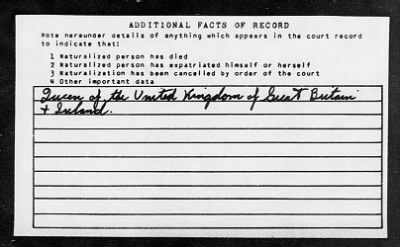 ADDITIONAL FACTS OF RECORD
Note hereunder details of anything which appears in the court record
to indicate that:
1 Naturalized person has died
2 Naturalized person has expatriated himself or herself
3 Naturalization has been cancelled by order of the court
4 Other important data
Queen of the United Kingdom of Great Britain
+ Ireland.